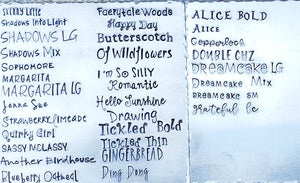 Skinny Latte
Shadows Into Light
SHADOWS LG
SHADOWS MIX
SOPHOMORE
MARGARITA
MARGARITA LG
Jenna Sue
Strawberry Limeade
Quirky Girl
SASSY MCLASSY
Another Birdhouse
Blueberry Oatmeal
Fairytale Woods
Happy Day
Butterscotch
Of Wildflowers
I'm So SILLY
Romantic
Hello Sunshine
Drawing
Tickled Bold
Tickled Thin
GINGERBREAD
Ding Dong
ALICE BOLD
Alice
Copperlock
DOUBLE CHZ
Dreamcake LG
Dreamcake Mix
Dreamcake SM
grateful